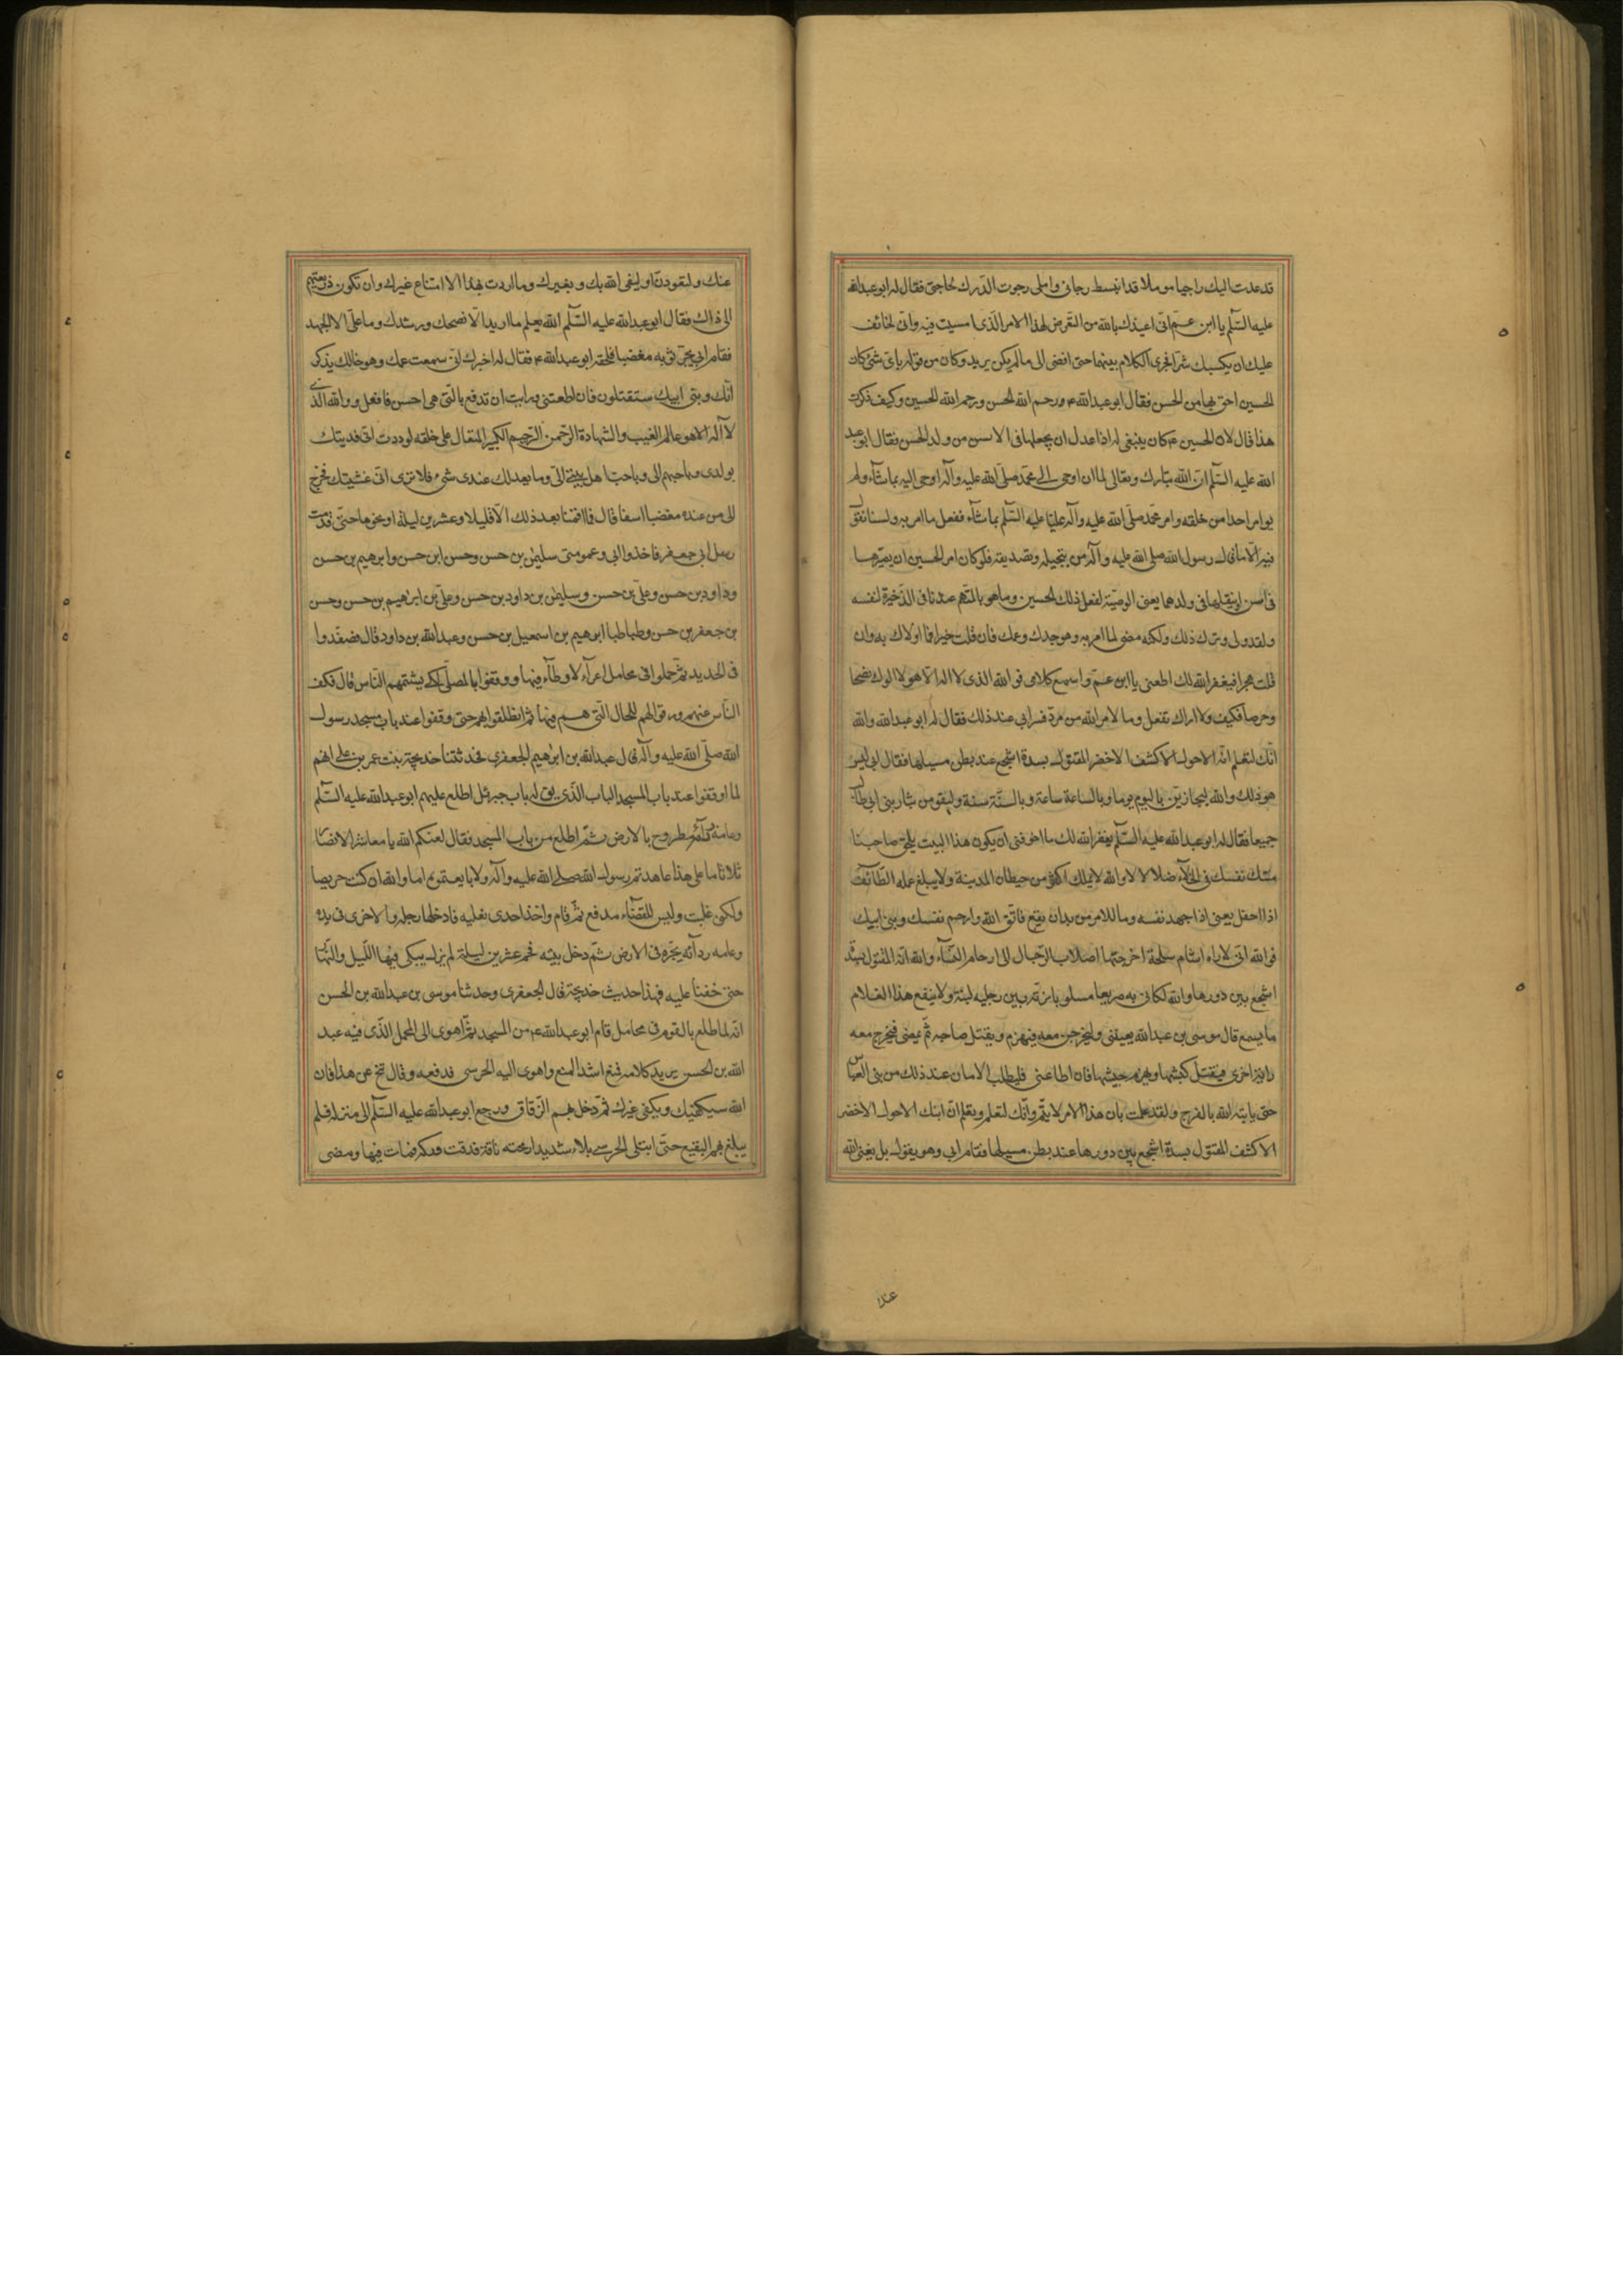 قد عدت اليك راجيا موملا قد انبسط رجائى واملى رجوت الدرك لحاجتى فقال له ابو عبدالله
عليه السلم يا ابن عم انى اعيذك بالله من التعرض لهذا الامر الذى امسيت فيه وانى لخائف
عليك ان يكسبك شرا فجرى الكلام بينهما حتى افضى الى ما لم يكن يريد وكان من قوله باى شئ كان
الحسين احق بها من الحسن فقال ابو عبدالله ع رحم الله الحسن ورحم الله الحسين وكيف ذكرت
هذا قال لان الحسين ع كان ينبغى له اذا عدل ان يجعلها فى الاسن من ولد الحسن فقال ابو عبد
الله عليه السلم ان الله تبارك وتعالى لما ان اوحى الى محمد صلى الله عليه وآله اوحى اليه بما شاء ولم
يوامر احدا من خلقه وامر محمد صلى الله عليه وآله عليا عليه السلم بما شاء ففعل ما امر به ولسنا نقول
فيه الا ما قال رسول الله صلى الله عليه وآله من تبجيله وتصديقه فلو كان امر الحسين ان يصيرها
فى اسن او ينقلها فى ولدهما يعنى الوصية لفعل ذلك الحسين وما هو بالمتهم عندنا فى الذخيرة لنفسه
ولقد ولى وترك ذلك ولكنه مضى لما امر به وهو جدك وعمك فان قلت خيرا فما اولاك به وان
قلت هجرا فيغفر الله لك اطعنى يا ابن عم واسمع كلامى فو الله الذى لا اله الا هو لا الوك نصحا
وحرصا فكيف ولا اراك تفعل وما لامر الله من مرد فسر ابى عند ذلك فقال له ابو عبدالله والله
انك لتعلم انه الاحول الاكشف الاخضر المقتول بسدة اشجع عند بطن مسيلها فقال ابى ليس
هو ذلك والله ليجازين باليوم يوما وبالساعة ساعة وبالسنة سنة وليقومن بثار بنى ابى طالب
جميعا فقال له ابو عبدالله عليه السلم يغفر الله لك ما اخوفنى ان يكون هذا البيت يلحق صاحبنا
منتك نفسك فى الخلاء ضلالا لا والله لا يملك اكثر من حيطان المدينة ولا يبلغ عمله الطائف
اذا احفل يعنى اذا جهد نفسه وما للامر من بد ان يقع فاتق الله وارحم نفسك وبنى ابيك
فو الله انى لاراه اشام سلحة اخرجتها اصلاب الرجال الى ارحام النساء والله انه المقتول بسدة
اشجع بين دورها والله لكانى به صريعا مسلوبا بزته بين رجليه لبنة ولا ينفع هذا الغلام
ما يسمع قال موسى بن عبدالله يعنينى وليخرجن معه فيهزم ويقتل صاحبه ثم يمضى فيخرج معه
راية اخرى فيقتل كبشها ويهزم جيشها فان اطاعنى فليطلب الامان عند ذلك من بنى العباس
حتى ياتيه الله بالفرج ولقد علمت بان هذا الامر لا يتم وانك لتعلم ونعلم ان ابنك الاحول الاخضر
الاكشف المقتول بسدة اشجع بين دورها عند بطن مسيلها فقام ابى وهو يقول بل يغنى الله
عنك
عنك ولتعودن او ليقى الله بك وبغيرك وما اردت بهذا الا امتناع غيرك وان تكون ذريعتهم
الى ذاك فقال ابو عبدالله عليه السلم الله يعلم ما اريد الا نصحك ورشدك وما على الا الجهد
فقام ابى يجر ثوبه مغضبا فلحقه ابو عبدالله ع فقال له اخبرك انى سمعت عمك وهو خالك يذكر
انك وبنى ابيك ستقتلون فان اطعتنى ورايت ان تدفع بالتى هى احسن فافعل ووالله الذى
لا آله الا هو عالم الغيب والشهادة الرحمن الرحيم الكبير المتعال على خلقه لوددت انى فديتك
بولدى وباحبهم الى وباحب اهل بيتى الى وما يعدلك عندى شئ فلا ترى انى غششتك فخرج
ابى من عنده مغضبا اسفا قال فما اقمنا بعد ذلك الا قليلا وعشرين ليلة او نحوها حتى قدمت
رسل ابى جعفر فاخذوا ابى وعمومتى سليمن بن حسن وحسن ابن حسن وابرهيم بن حسن
وداود بن حسن وعلى بن حسن وسليمن بن داود بن حسن وعلى بن ابراهيم بن حسن وحسن
بن جعفر بن حسن وطباطبا ابرهيم بن اسمعيل بن حسن وعبدالله بن داود قال فصفدوا
فى الحديد ثم حملوا فى محامل اعراء لا وطاء فيها ووقفوا بالمصلى لكى يشتمهم الناس قال فكف
الناس عنهم ورقوا لهم للحال التى هم فيها ثم انطلقوا بهم حتى وقفوا عند باب مسجد رسول
الله صلى الله عليه وآله قال عبدالله بن ابراهيم الجعفرى فحدثتنا خديجة بنت عمر بن على انهم
لما اوقفوا عند باب المسجد الباب الذى يق له باب جبرئل اطلع عليهم ابو عبدالله عليه السلم
وعامة ردآئه مطروح بالارض ثم اطلع من باب المسجد فقال لعنكم الله يا معاشر الانصار
ثلاثا ما على هذا عاهدتم رسول الله صلى الله عليه وآله ولا بايعتموه اما والله ان كنت حريصا
ولكنى غلبت وليس للقضاء مدفع ثم قام واخذ احدى نعليه فادخلها رجله والاخرى فى يده
وعامه ردآئه يجره فى الارض ثم دخل بيته فحم عشرين ليلة لم يزل يبكى فيها الليل والنهار
حتى خفنا عليه فهذا حديث خديجة قال الجعفرى وحدثنا موسى بن عبدالله بن الحسن
انه لما طلع بالقوم فى محامل قام ابو عبدالله ع من المسجد ثم اهوى الى المحمل الذى فيه عبد
الله بن الحسن يريد كلامه فمنع اشد المنع واهوى اليه الحرسى فدفعه وقال تنح عن هذا فان
الله سيكفيك ويكفى غيرك ثم دخل بهم الزقاق ورجع ابو عبدالله عليه السلم الى منزله فلم
يبلغ بهم البقيع حتى ابتلى الحرسى بلاء شديدا رمحته ناقته فدقت وركه فمات فيها ومضى